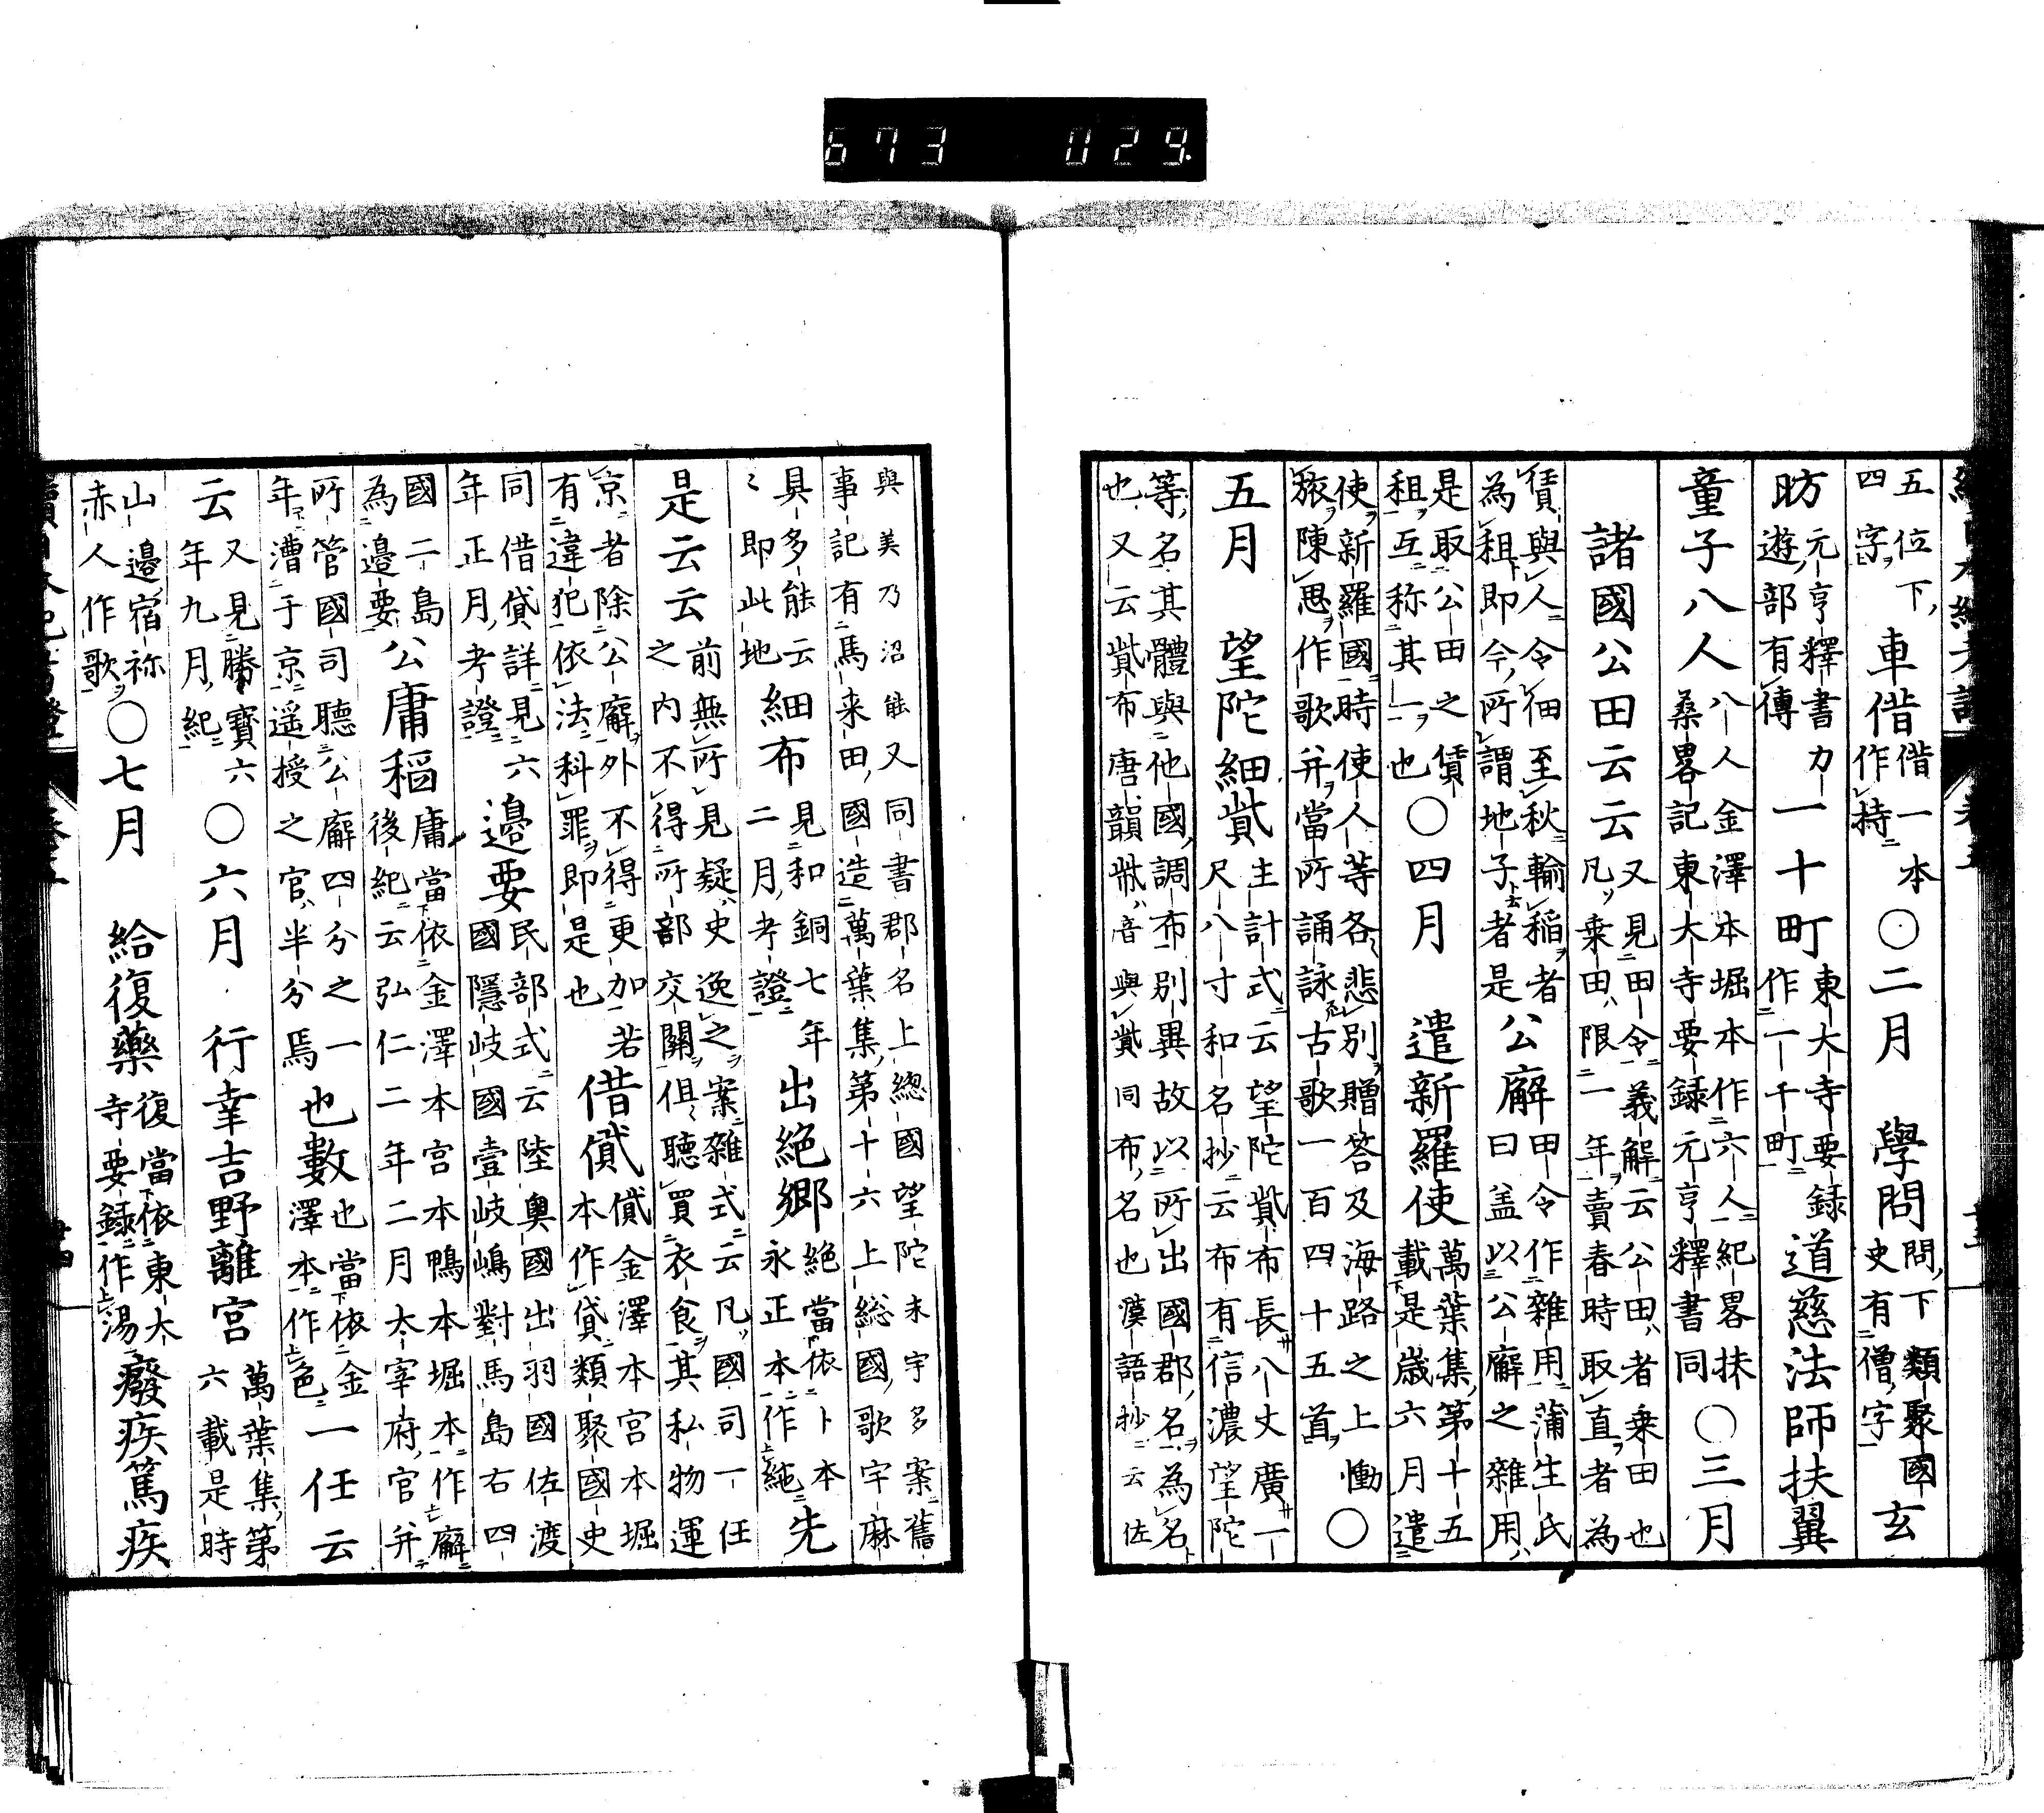 673 029.
五位下、
四字、
車偕
偕一本
作持
〇二月　學問
問、下類聚國
史有僧字
玄
昉
元亨釋書力
遊、部有傳
一十町
東大寺要録
作一千町
道慈法師扶翼
童子八人
八人金澤本堀本作六人紀畧扶
桑畧記東大寺要録元亨釋書同
〇三月
諸國公田云云
又見田令義解云公田ハ者乗田也
凡ソ乗田ハ限一年賣春時取直ヲ者為
賃與人令佃至秋輸稲ヲ者
為租即今所謂地子者是
公廨
田令作雜用蒲生氏
曰盖以公廨之雜用ハ
是取公田之賃
租ヲ互称其一ヲ也
〇四月　遣新羅使
萬葉集第十五
載是歳六月遣
使ヲ新羅國時使人等各悲別ヲ贈答及海路之上慟
旅ヲ陳思ヲ作歌并ヲ當所誦詠古歌一百四十五首ヲ
〇
五月　望陀細貲
主計式云望陀貲布長八丈廣一
尺八寸和名抄云布有信濃望陀
等、名其體與他國調布別異故以所出國郡名ヲ為名
也又云貲布唐韻貲ハ音與貲同布名也漢語抄云佐
與美乃沼能又同書郡名上總國望陀末宇多案舊
事記有馬来田國造萬葉集第十六上総國歌宇麻
具多能云
〻即此地
細布
見和銅七年
二月考證
出絶郷
絶當依卜本
永正本作純
先
是云云
前無所見疑ハ史逸之ヲ案雜式云凡ソ國司一任
之内不得所部交關ヲ但聽買衣食ヲ其私物運
京者除公廨ヲ外不得更加
有違犯依法科罪ヲ即是也
若
借貸
貸金澤本宮本堀
本作貸類聚國史
同借貸詳見六
年正月考證
邊要
民部式云陸奥國出羽國佐渡
國隱岐國壹岐嶋對馬島右四
國二島
為邊要
公庸稻
庸當依金澤本宮本鴨本堀本作廨
後紀云弘仁二年二月太宰府官并
所管國司聽公廨四分之一
年漕于京遥授之官ハ半分焉
也數
也當依金
澤本作色
一任云
云
又見勝寶六
年九月紀
〇六月　行幸吉野離宮
萬葉集第
六載是時
山邊宿祢
赤人作歌ヲ
〇七月　給復藥
復當依東大
寺要録作湯
癈疾篤疾